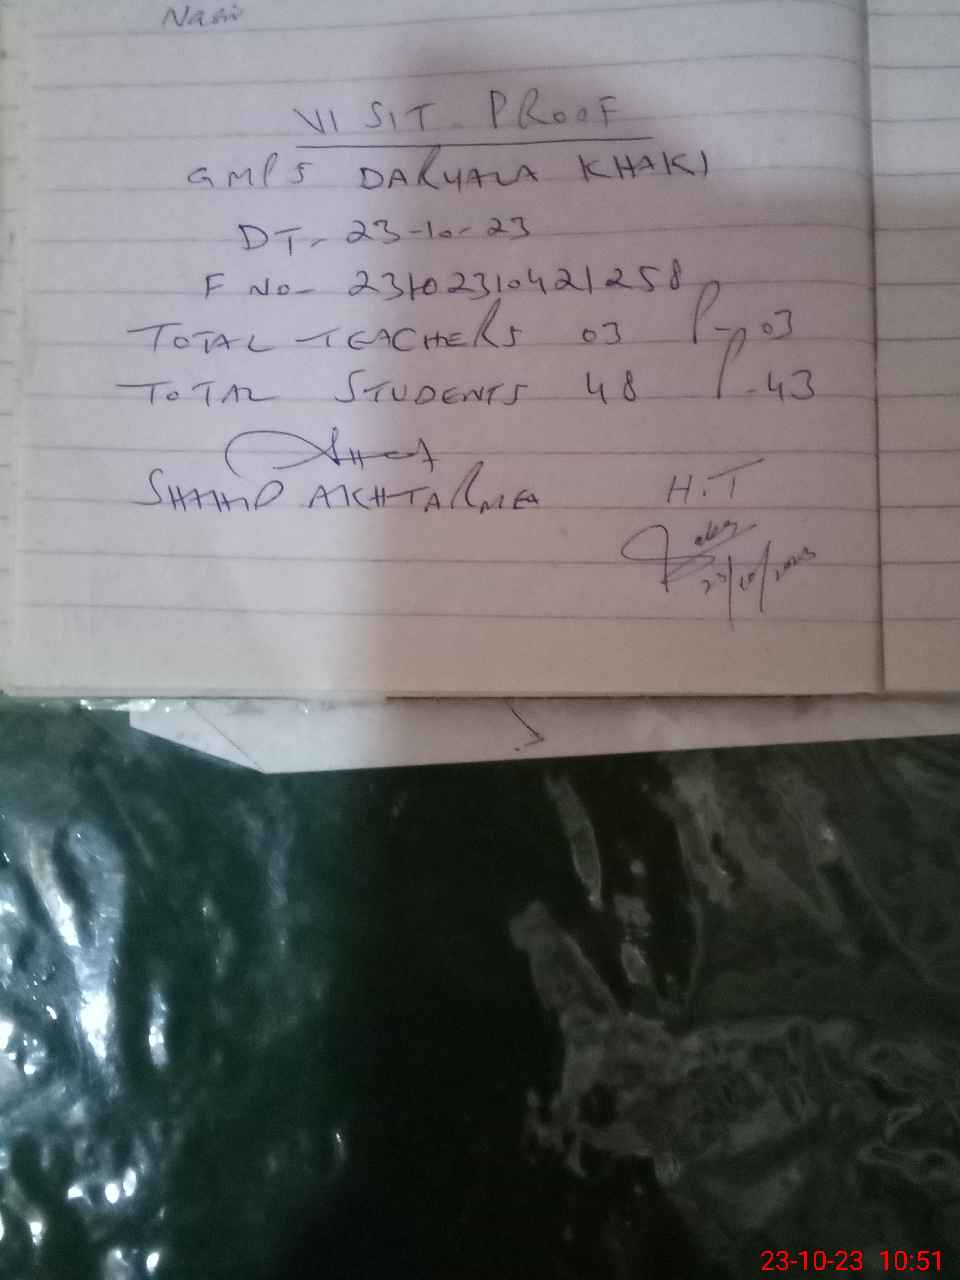 VISIT PROOF
GMPS DARYALA KHAKI
DT- 23-10-23
F No- 23102310421258
TOTAL TEACHERS 03 P- 03
TOTAL STUDENTS 48 P- 43
SHAHID AKHTAR MEA
H.T
23/10/2023
23-10-23 10:51